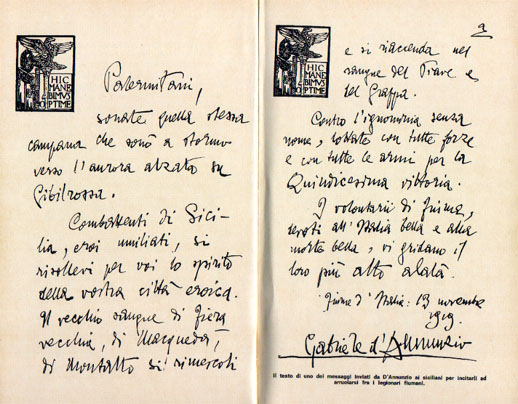 HIC
MANE
BIMVS
OPTIME
Palermitani,
sonate quella stessa
campana che sonò a stormo
verso l'aurora alzata su
Gibilrossa.
Combattenti di Sici-
lia, eroi umiliati, si
risollevi per voi lo spirito
della vostra città eroica.
Il vecchio sangue di Fiera
vecchia, di Macqueda,
di Montalto si rimescoli
HIC
MANE
BIMVS
OPTIME
e si riaccenda nel
sangue del Piave e
del Grappa.
Contro l'ignominia senza
nome, lottate con tutte forze
e con tutte le armi per la
Quindicesima vittoria.
I volontarii di Fiume,
devoti all'Italia bella e alla
morte bella, vi gridano il
loro più alto alalà.
Fiume d'Italia: 13 novembre
1919.
Gabriele d'Annunzio
Il testo di uno dei messaggi inviati da D'Annunzio ai siciliani per incitarli ad
arruolarsi fra i legionari fiumani.